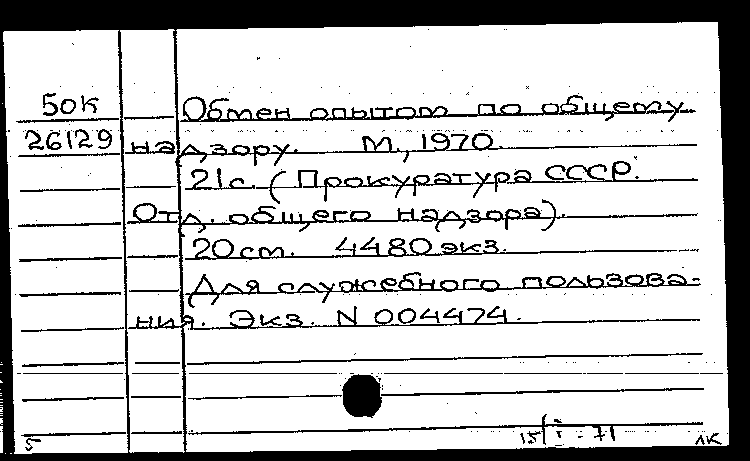 50к Обмен опытом по общему
26129 надзору. М., 1970.
21с. (Прокуратура СССР.
Отд. общего надзора).
20 cm. 4480 экз.
Для служебного пользова-
ния. Экз. N 004474.
5 15/I - 71 ЛК